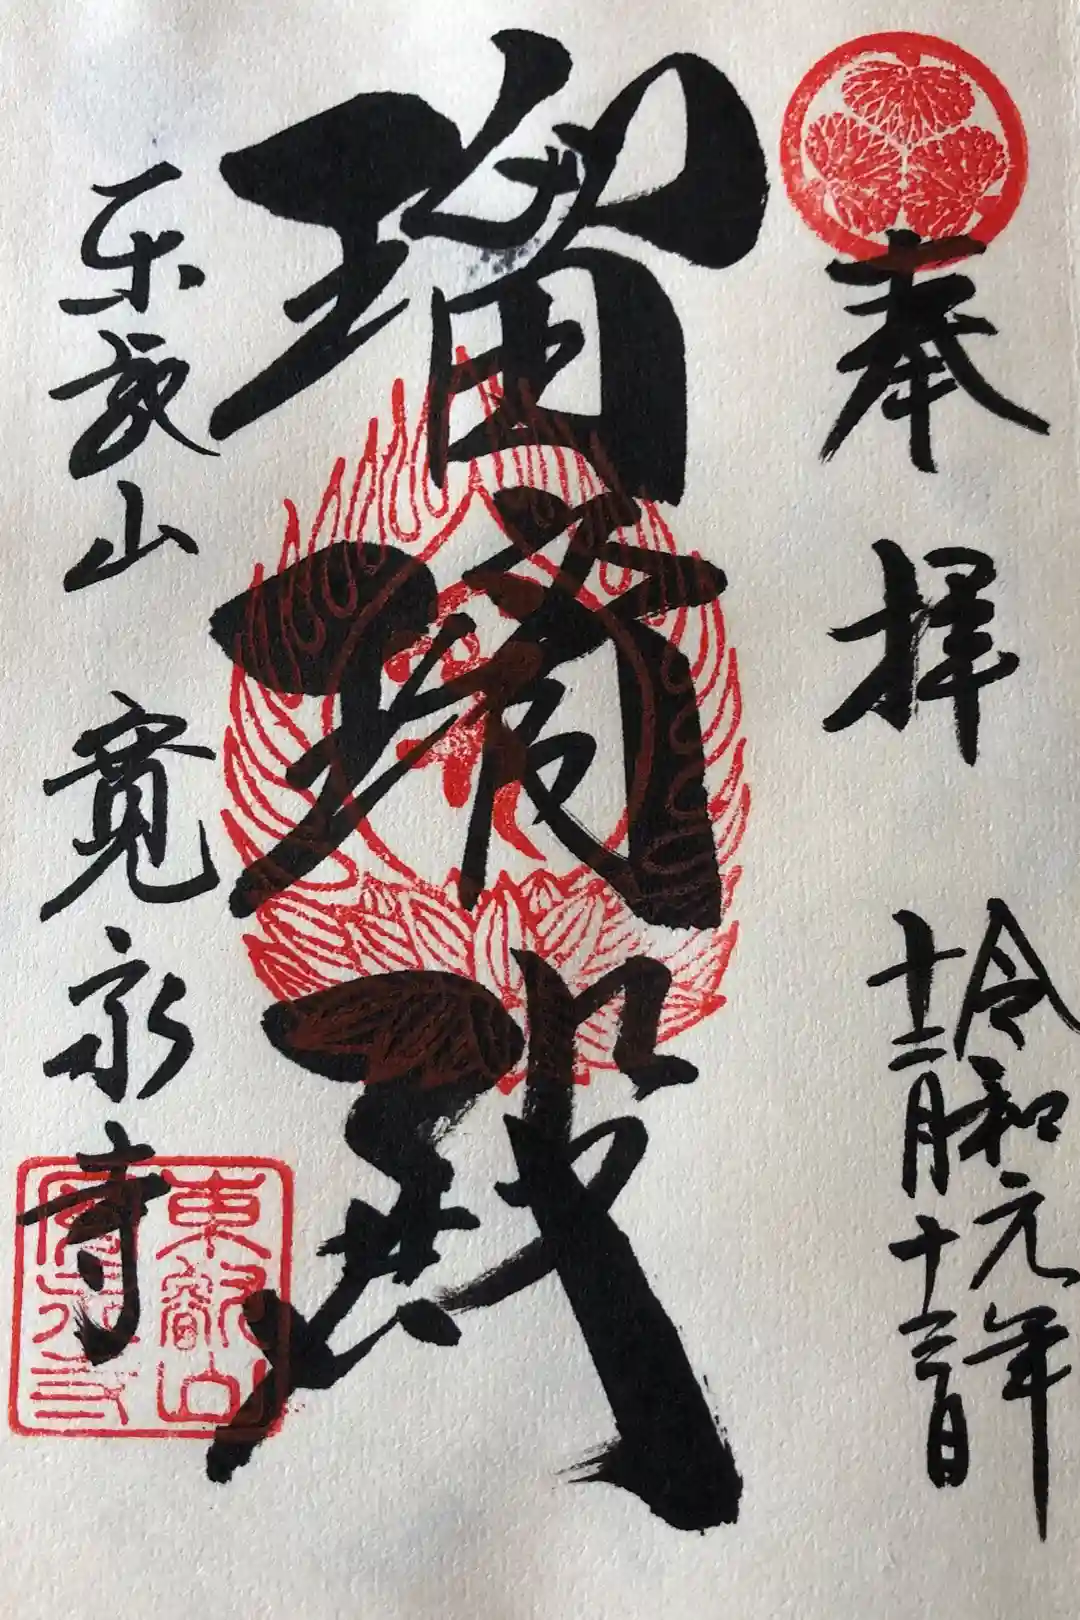 奉拝
令和元年
十二月十三日
瑠璃殿
東叡山 寛永寺
東叡山
寛永寺